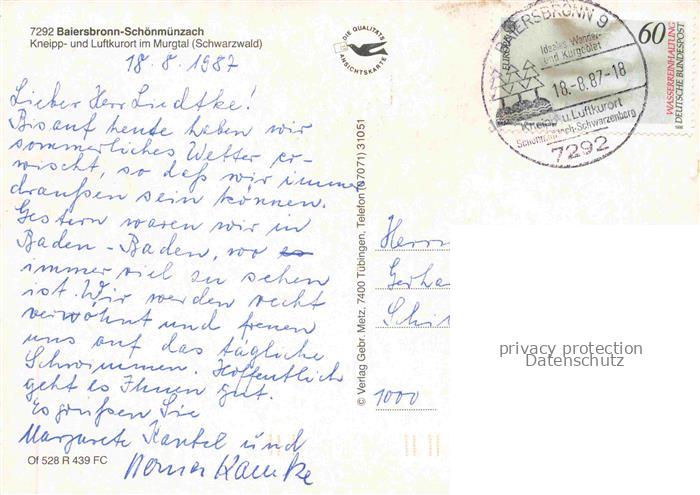 7292 Baiersbronn-Schönmünzach
Kneipp- und Luftkurort im Murgtal (Schwarzwald)
18.8.1987
Lieber Herr Liedtke!
Bis auf heute haben wir
sommerliches Wetter er-
wischt, so daß wir immer
draußen sein können.
Gestern waren wir in
Baden-Baden, wo es
immer viel zu sehen
ist. Wir werden recht
verwöhnt und freuen
uns auf das tägliche
Schwimmen. Hoffentlich
geht es Ihnen gut.
Es grüßen Sie
Margarete Kantel und
Werner
Of 528 R 439 FC
DIE QUALITÄTS
ANSICHTSKARTE
© Verlag Gebr. Metz, 7400 Tübingen, Telefon (07071) 31051
BAIERSBRONN 9
Ideales Wander-
und Kurgebiet
18.-8.87-18
Kneipp- u. Luftkurort
Schönmünzach-Schwarzenberg
7292
60
WASSERREINHALTUNG
DEUTSCHE BUNDESPOST
Herrn
Gerha
Schi
1000
privacy protection
Datenschutz